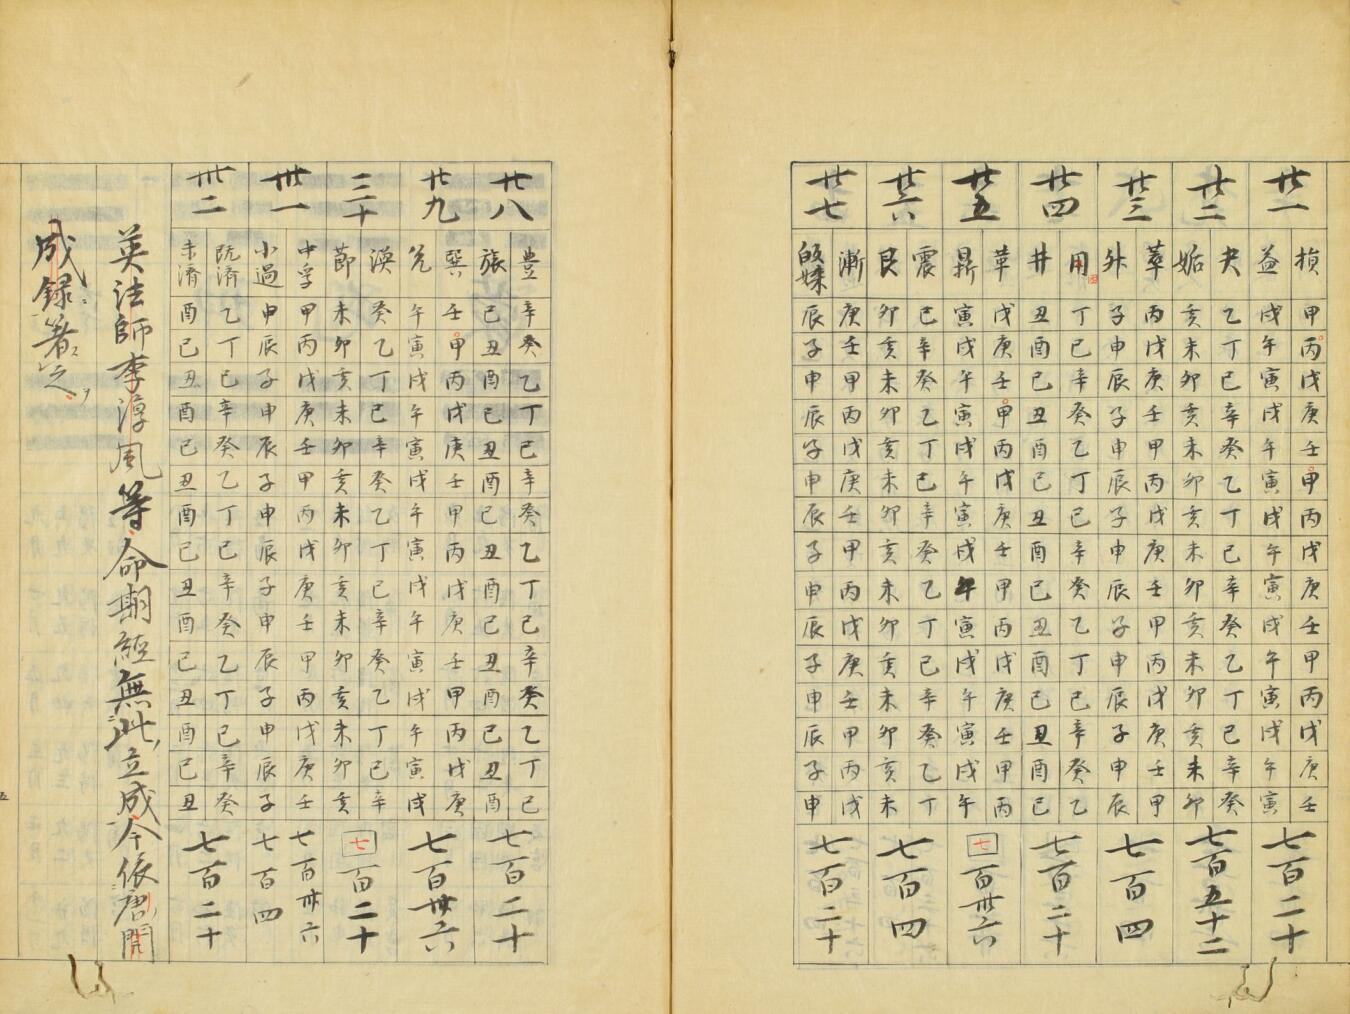 廿一
損甲丙戊庚壬甲丙戊庚壬甲丙戊庚壬
益戌午寅戌午寅戌午寅戌午寅戌午寅
七百二十
廿二
夬乙丁巳辛癸乙丁巳辛癸乙丁巳辛癸
姤亥未卯亥未卯亥未卯亥未卯亥未卯
七百五十二
廿三
萃丙戊庚壬甲丙戊庚壬甲丙戊庚壬甲
升子申辰子申辰子申辰子申辰子申辰
七百四
廿四
用丁巳辛癸乙丁巳辛癸乙丁巳辛癸乙
困
井丑酉巳丑酉巳丑酉巳丑酉巳丑酉巳
七百二十
廿五
革戊庚壬甲丙戊庚壬甲丙戊庚壬甲丙
鼎寅戌午寅戌午寅戌午寅戌午寅戌午
七百卅六
廿六
震巳辛癸乙丁巳辛癸乙丁巳辛癸乙丁
艮卯亥未卯亥未卯亥未卯亥未卯亥未
七百四
廿七
漸庚壬甲丙戊庚壬甲丙戊庚壬甲丙戊
皈妹辰子申辰子申辰子申辰子申辰子申
七百二十
廿八
豊辛癸乙丁巳辛癸乙丁巳辛癸乙丁巳
旅巳丑酉巳丑酉巳丑酉巳丑酉巳丑酉
七百二十
廿九
巽壬甲丙戊庚壬甲丙戊庚壬甲丙戊庚
兌午寅戌午寅戌午寅戌午寅戌午寅戌
七百卅六
三十
渙癸乙丁巳辛癸乙丁巳辛癸乙丁巳辛
節未卯亥未卯亥未卯亥未卯亥未卯亥
七百二十
卅一
中孚甲丙戊庚壬甲丙戊庚壬甲丙戊庚壬
小過申辰子申辰子申辰子申辰子申辰子
七百卅六
七百四
卅二
既濟乙丁巳辛癸乙丁巳辛癸乙丁巳辛癸
未濟酉巳丑酉巳丑酉巳丑酉巳丑酉巳丑
七百二十
英法師李淳風等命期經無此立成今依唐開
成録著之
五